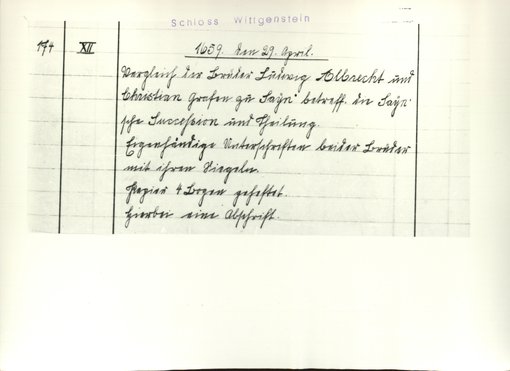 Schloss Wittgenstein
174 XII 1659. den 29. April.
Vergleich der Brüder Ludwig Albrecht und
Christian Grafen zu Sayn betreff. die Sayn-
sche Succession und Theilung.
Eigenhändige Unterschriften beider Brüder
mit ihren Siegeln.
Papier 4 Bogen geheftet.
Hierbei eine Abschrift.